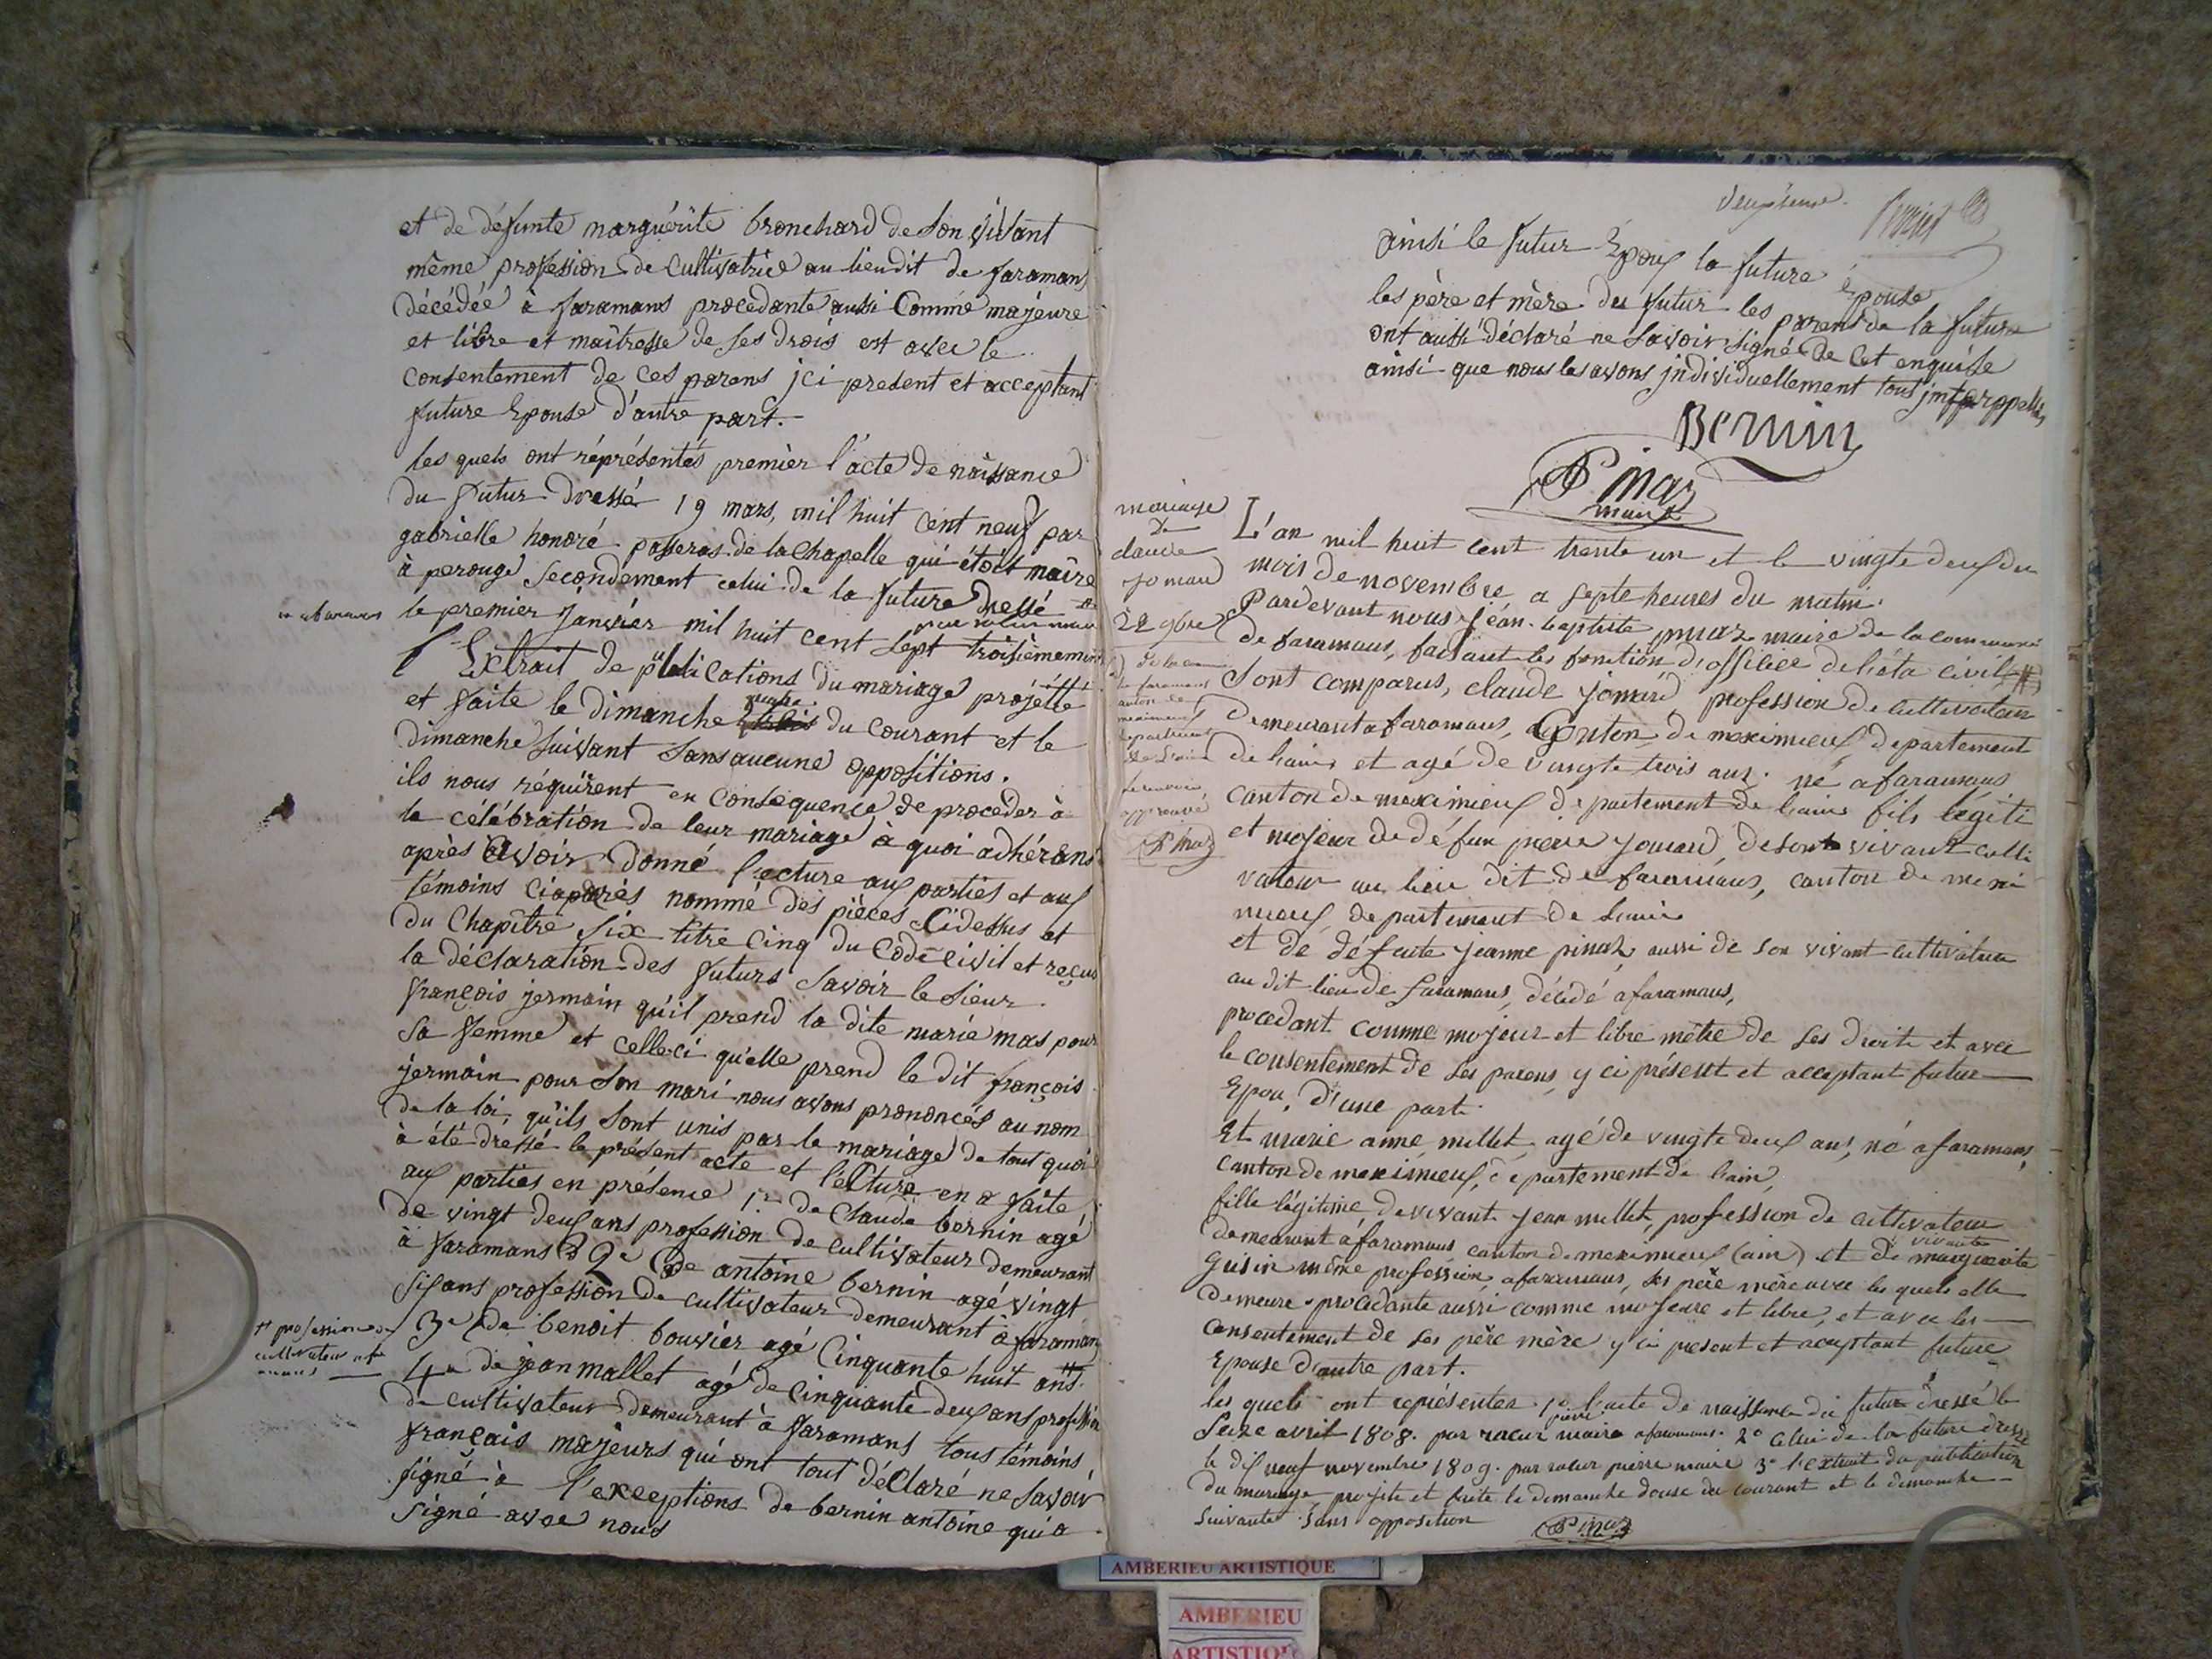 et de défunte marguérite bronchard de son vivant
même profession de cultivatrice au lieu dit de faramans
décédée à faramans procedante aussi Comme majeure
et libre et maîtresse de ses drois est avec le
consentement de ces parens jci present et acceptant
future Epouse d'autre part.
les quels ont réprésentés premièr l'acte de naissance
du futur dressé 19 mars, mil huit cent neuf par
gabrielle honoré passeras de la Chapelle qui étoit maire
à perouge secondement celui de la future dressé
le premier janvier mil huit cent sept troisièmement
l'Extrait de publications du mariage projetté
et faite le dimanche du courant et le
dimanche suivant sans aucune oppositions.
ils nous réquirent en consequence de proceder à
la célébration de leur mariage à quoi adhérant
après avoir donné lecture aux parties et aux
témoins ciaprès nommé des pièces Cidessus et
du Chapitre Six titre Cinq du Code civil et reçus
la déclaration des futurs Savoir le sieur
françois jermain qu'il prend la dite marie mas pour
sa femme et celle-ci qu'elle prend le dit françois
jermain pour Son mari nous avons prononcés au nom
de la loi, qu'ils sont unis par le mariage de tout quoi
à été dressé le présent acte et lecture en a faite
aux parties en présence 1er de Claude bernin agé
de vingt deux ans profession de cultivateur demeurant
à faramans 2e de antoine bernin agé vingt
six ans profession de cultivateur demeurant à faramans
3e de benoit bouvier agé Cinquante huit ans #
# profession de
cultivateur
4e de jean mallet agé de cinquante deux ans profession
de cultivateur demeurant à faramans tous témoins
français majeurs qui ont tout déclaré ne savoir
signé à l'exceptions de bernin antoine qui a
signé avec nous
ainsi le futur Epoux la future épouse
les père et mère du futur les parens de la future
ont aussi déclaré ne savoir signé de cet enquise
ainsi que nous les avons jndividuellement tous jnterppellés
Bernin
Pinaz
maire
mariage
de
claude
jomard
22 9bre
L'an mil huit cent trente un et le vingte deux du
mois de novembre a septe heures du matin.
Pardevant nous jean-baptiste pinaz maire de la commune
de faramans, faisant les fonction d'officiee de l'éta civil #
# de la
de faramans
canton de
meximieux
departement
de l'ain
le renvoi
approuvé
Pinaz
Sont comparus, claude jomard profession de cultivateur
demeurant a faramans, Canton de meximieux departement
de l'ain et agé de vingte trois ans. né a faramans
canton de meximieux departement de l'ain fils légiti
et majeur de défun pierre jomard, de son vivant culti
vateur au lieu dit de faramans, canton de mexi
mieux departement de l'ain
et de défunte jeanne pinaz aussi de son vivant cultivatrice
au dit lieu de faramans, décédé a faramans,
procedant comme majeur et libre mètre de ses droits et avec
le consentement de ses parens y ci présent et acceptant futur
Epou, d'une part.
Et marie anne millet agé de vingte deux ans, né a faramans,
canton de meximieux, departement de l'ain,
fille légitime de vivant jean millet, profession de cultivateur
demeurant a faramans canton de meximieux (ain) et de vivante marguerite
guisin même profession, a faramans, ses père mère avec les quels elle
demeure, procédante aussi comme majeure et libre, et avec les
consentement de ses père mère y ci présent et acceptant future
epouse d'autre part.
les quels ont représentés 1° l'acte de naissance du futur dressé le
seize avril 1808. par racur pierre maire a faramans. 2° Celui de la future dressé
le dix neuf novembre 1809. par racur pierre maire 3° l'extrait de publication
du mariage projité et faite le dimanche douse du courant et le dimanche
suivante sans opposition Pinaz
AMBERIEU ARTISTIQUE
AMBERIEU